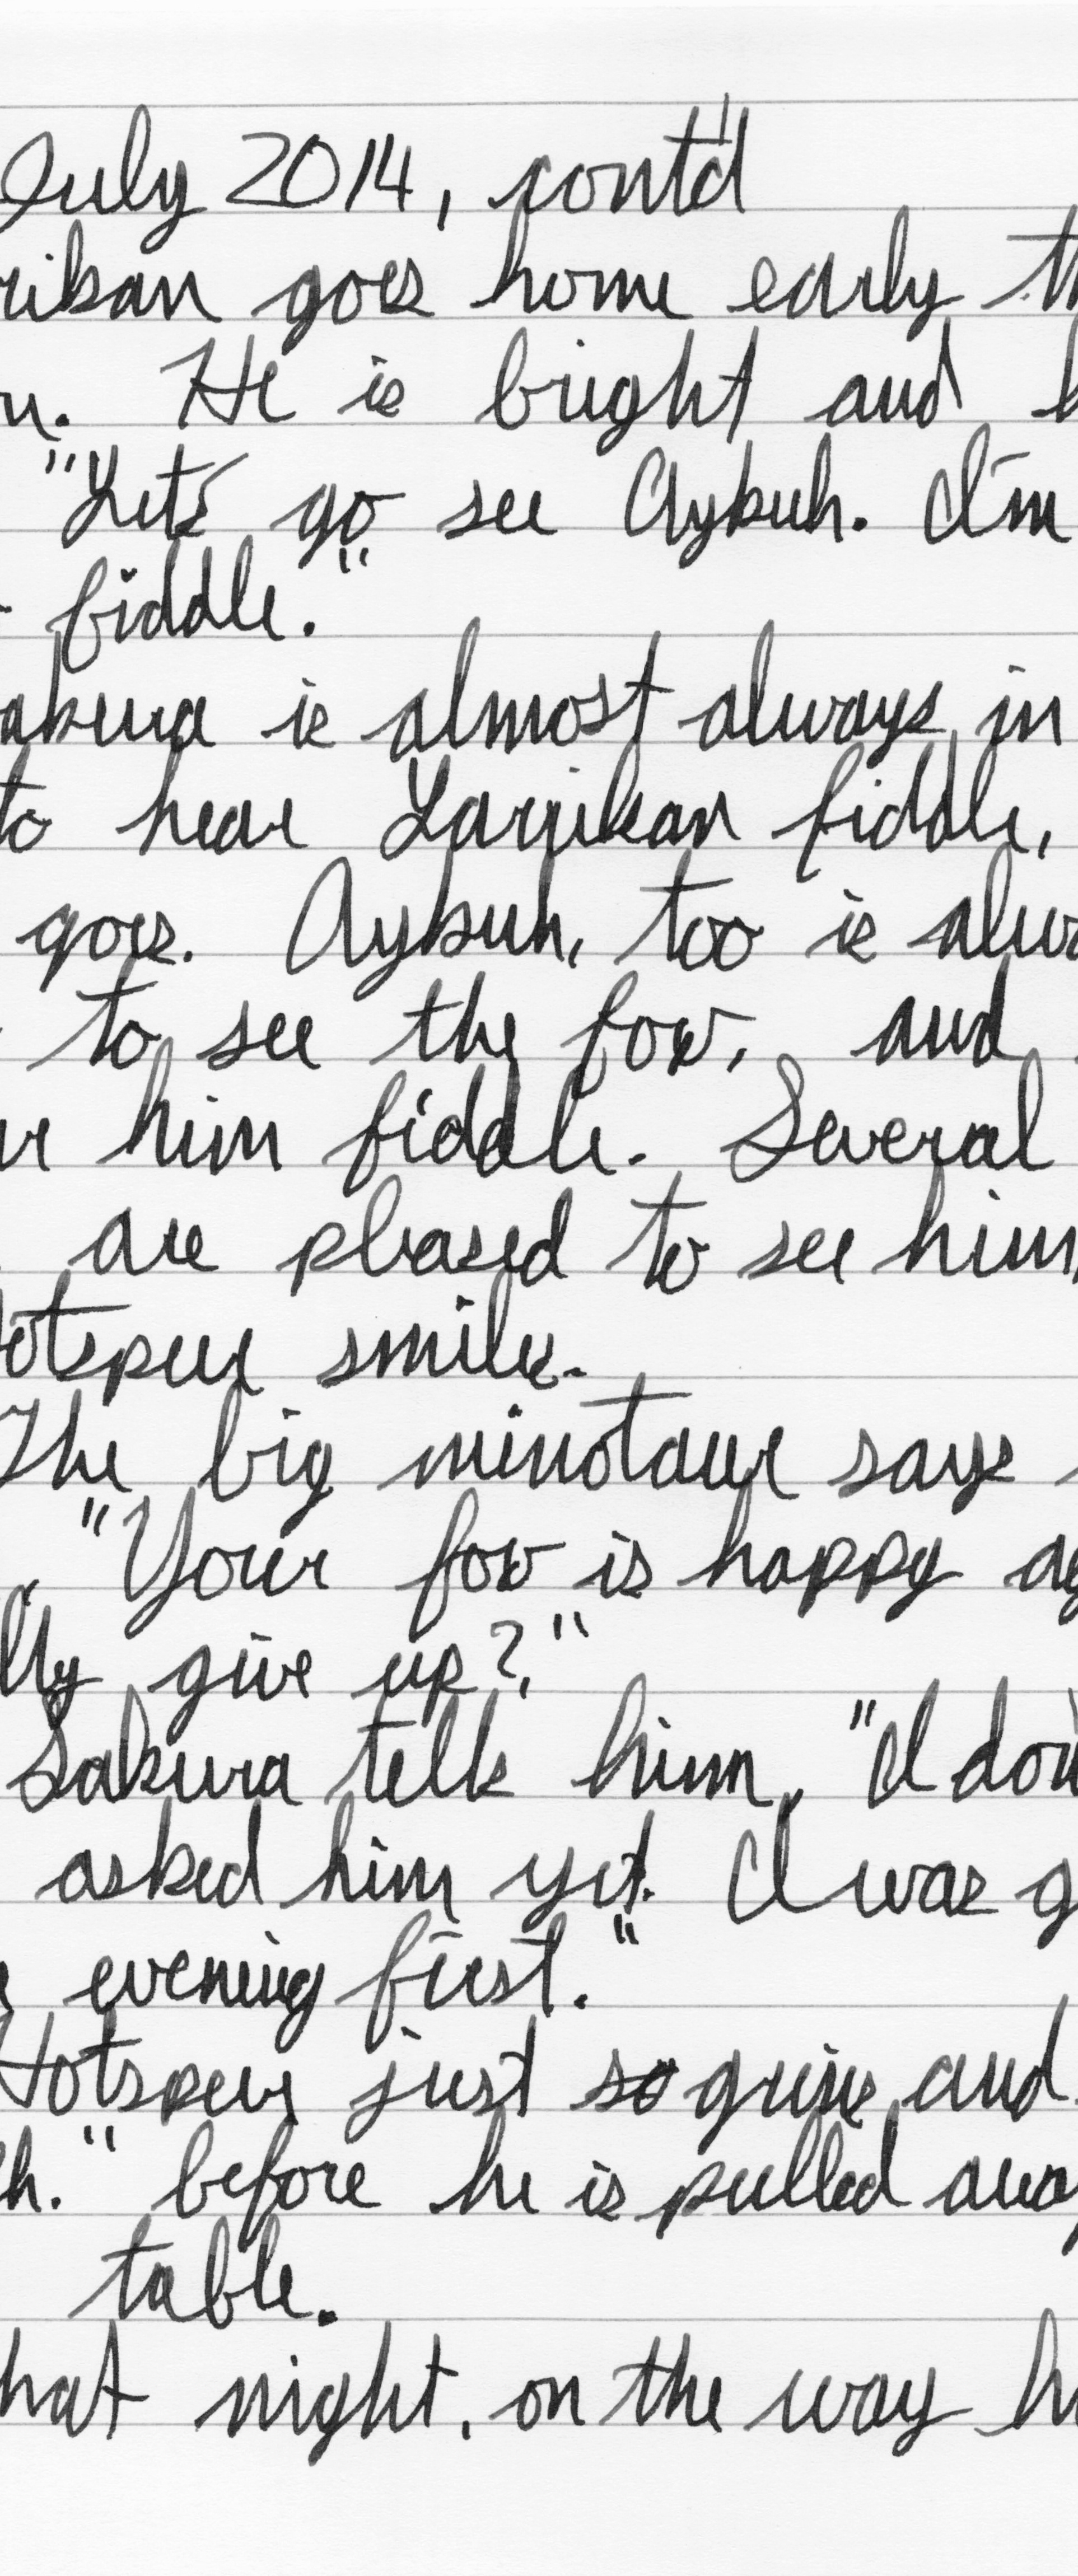 July 2014, cont'd
rikan goes home early th
n. He is bright and h
"Let's go see Aykuh. I'm
fiddle."
akura is almost always in
to hear Larrikan fiddle,
goes. Aykuh, too is alwa
to see the fox, and
ar him fiddle. Several
are pleased to see him,
otspur smiles.
The big minotaur says
"Your fox is happy ag
lly give up?"
Sakura tells him, "I don'
asked him yet. I was g
evening first."
Hotspur just so grins and
h." before he is pulled away
table.
hat night, on the way h